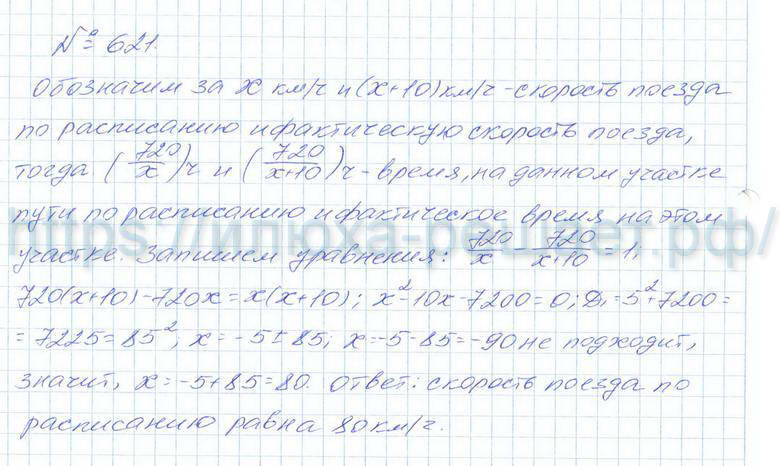 № 621.
Обозначим за x км/ч и (x+10) км/ч - скорость поезда
по расписанию и фактическую скорость поезда,
тогда (720/x) ч и (720/x+10) ч - время, на данном участке
пути по расписанию и фактическое время на этом
https://илюха-решает.рф/
участке. Запишем уравнения: 720/x - 720/x+10 = 1;
720(x+10)-720x = x(x+10); x²-10x-7200=0; D₁=5²+7200=
=7225=85²; x=-5±85; x=-5-85=-90 не подходит,
значит, x=-5+85=80. Ответ: скорость поезда по
расписанию равна 80 км/ч.